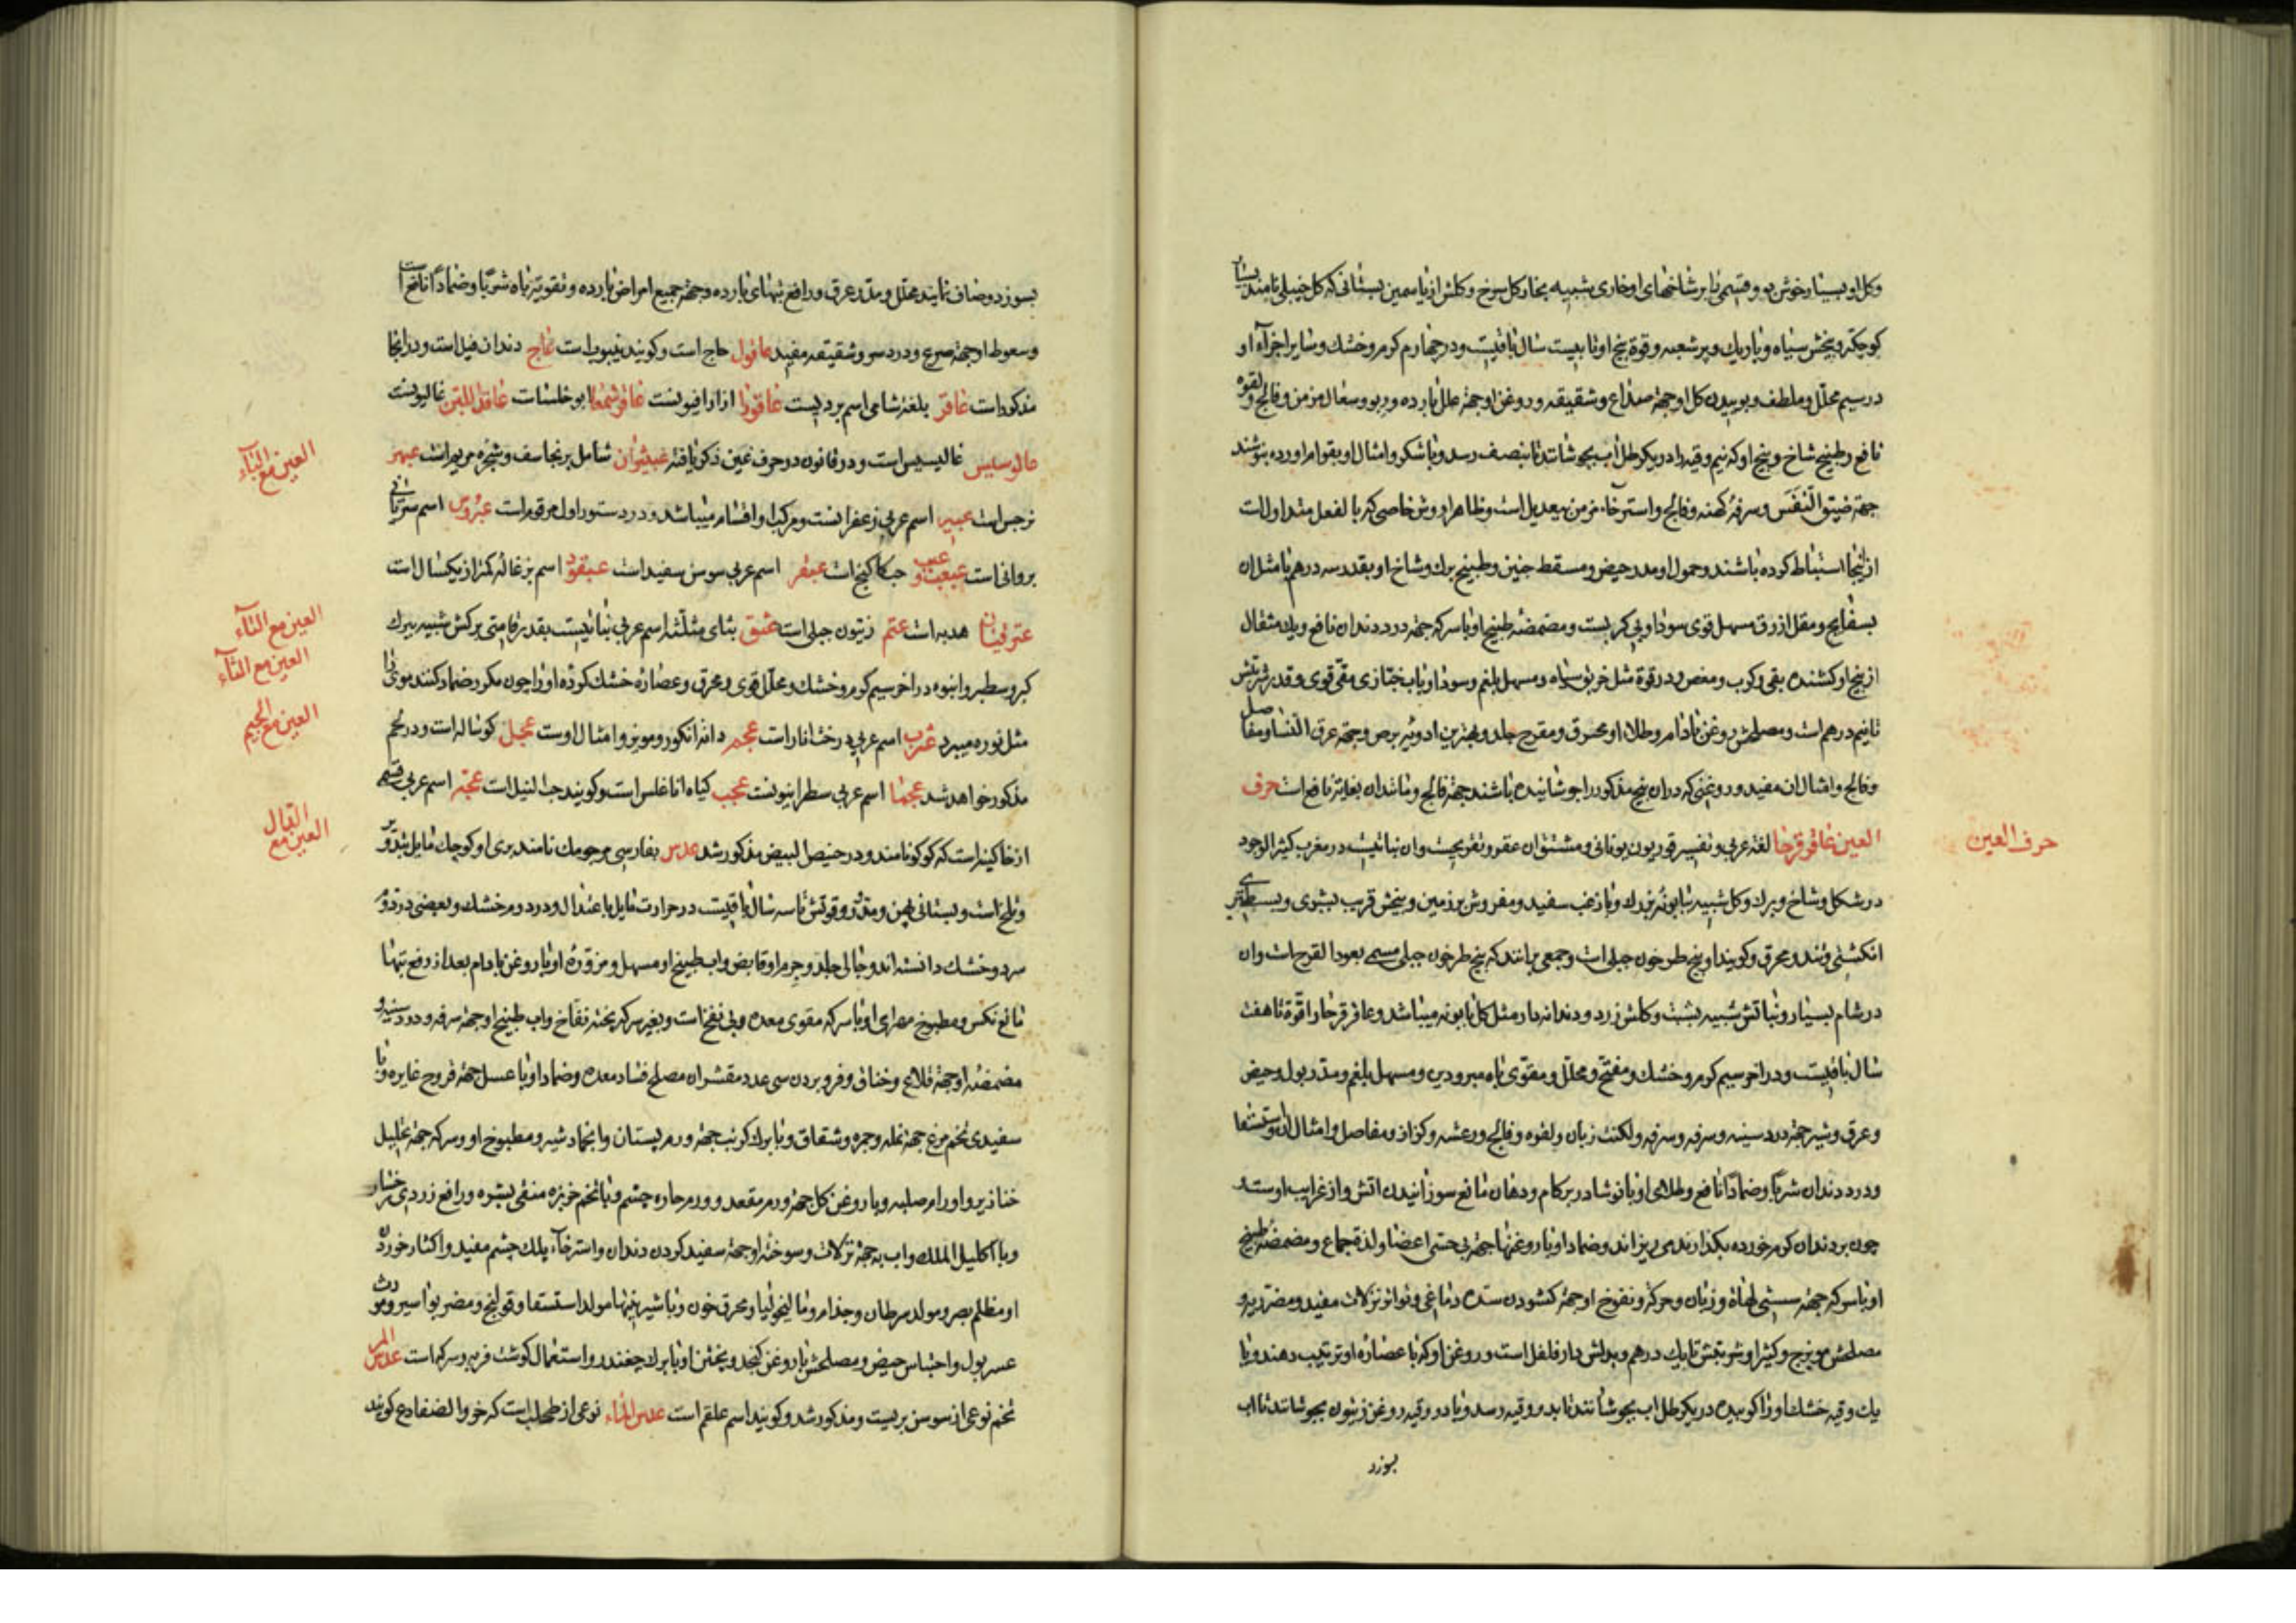 وکل او بسیار خوش بو و قسمی را بر شاخهای او خاری شبیه بخار کل سرخ و کلش از یاسمین بستانی که کل جبلی نامند بسیار
کوچکتر و بیخش سیاه و باریک و پر شعبه و قوة بیخ او تا بیست سال باقیست و در چهارم کرم و خشک و سایر اجزآء او
در سیم محلل و ملطف و بوییدن کل او جهة صداع و شقیقه و روغن او جهة علل بارده و ربو و سعال مزمن و فالج و لقوه
نافع و طبیخ شاخ و بیخ او که نیم وقیه را در یکرطل آب بجوشانند تا بنصف رسد و با شکر و امثال او بقوام اورده بنوشند
جهة ضیق النفس و سرفه کهنه و فالج و استرخاء مزمن بیعدیل است و ظاهرا دوش خاصی که بالفعل متداولات
ازینجا استنباط کرده باشند و حمول او مدر حیض و مسقط جنین و طبیخ برک و شاخ او بقدر سه درهم با مثل ان
بسفایج و مقل ازرق مسهل قوی سودا و بی کربست و مضمضه طبیخ او با سرکه جهة درد دندان نافع و یک مثقال
از بیخ او کشنده بقی و کرب و مغص و در قوة مثل خربق سیاه و مسهل بلغم و سودا و باب خبازی مقی قوی و قدر شربتش
تا نیم درهم است و مصلحش روغن بادام و طلاء او محرق و مقرح جلد و بهترین ادویه برص و جهة عرق النسا و مفاصل
و فالج و امثال ان مفید و روغنی که در ان بیخ مذکور را جوشانیده باشند جهة فالج و مانند ان بغایة نافع است حرف
العین عاقر قرحا لغة عربی و تفسیر قوریون یونانی و مشتق از عقر و تقریحست و ان نباتیست در مغرب کثیر الوجود
در شکل و شاخ و برک و کل شبیه ببابونه بزرک و با زغب سفید و مفروش بر زمین و بیخش قریب بشبری و بسطبری
انکشتی و تند و محرق و کویند او بیخ طرخون جبلی است و جمعی برانند که بیخ طرخون جبلی مسمی بعود القرح است و ان
در شام بسیار و نباتش شبیه بشبت و کلش زرد و دندانه دار مثل کل بابونه میباشد و عاقر قرحا را قوة تا هفت
سال باقیست و در اخر سیم کرم و خشک و مفتح و محلل و مقوی باه مبرودین و مسهل بلغم و مدر بول و حیض
و عرق و شیر جهة درد سینه و سرفه و لکنت زبان و لقوه و فالج و رعشه و کزاز و مفاصل و امثال ان و استسقا
و درد دندان شربا و ضمادا نافع و طلای او با نوشادر بر کام و دهان مانع سوزانیدن اتش و از غرایب اوست
چون بر دندان کرم خورده بکذارند می ریزاند و ضماد او با روغنها جهة بی حسی اعضا و لذة جماع و مضمضه طبیخ
او با سرکه جهة سستی لهاة و زبان و حرکة و نفوخ او جهة کشودن سده دماغی و تواتر نزلات مفید و مضر ریه و
مصلحش مویزج و کثیرا و شربتش تا یک درهم و بدلش دارفلفل است و روغن او که با عصاره او ترتیب دهند و یا
یک وقیه خشک او را کوبیده در یکرطل اب بجوشانند تا بدو وقیه رسد و با دو وقیه روغن زیتون بجوشانند تا اب
بسوزد
حرف العین
بسوزد و صاف نمایند محلل و مدر عرق و رافع تبهای بارده و جهة جمیع امراض بارده و تقویة باه شربا و ضمادا نافع است
و سعوط او جهة صرع و درد سر و شقیقه مفید عاقول حاج است و کویند ینبوت است عاج دندان فیل است و در انجا
مذکور است عاقر بلغة شامی اسم بردیست عاقودا ازاراقیونست عاقر شمعا ابو خلساست عاقد اللبن غالیونست
عالوسیس غالیبسیس است و در قانون در حرف غین ذکر یافته عبیثران شامل برنجاسف و شجره مریم است عبهر
نرجس است عبیر اسم عربی زعفرانست و مرکب او اقسام میباشد و در دستور اول مرقوم است عبروس اسم سریانی
بروانی است عبعب و عبب حب کاکنج است عبقر اسم عربی سوسن سفید است عبقود اسم بزغاله کمتر از یکسال است
هدبه است عتم زیتون جبلی است عثق بثای مثلثه اسم عربی نباتیست بقدر قامتی برکش شبیه ببرک
کبر و سطبر و انبوه در اخر سیم کرم و خشک و محلل قوی و محرق و عصاره خشک کرده او را چون مکرر ضماد کنند موی را
مثل نوره میبرد عثرب اسم عربی درخت انار است عجم دانه انکور و مویز و امثال اوست عجل کوساله است و در لحم
مذکور خواهد شد عجما اسم عربی سطرانیونست عجب کیاه اناغلس است و کویند حب النیل است عجة اسم عربی قسمی
از خاکینه است که کوکو نامند و در خبیص البیض مذکور شد عدس بفارسی مرجومک نامند بری او کوچک مایل بتدویر
و تلخ است و بستانی پهن و مدور و قوتش تا سه سال باقیست در حرارت مایل باعتدال و در دوم خشک و بعضی در دوم
سرد و خشک دانسته اند و جالی جلد و جرم او قابض و اب طبیخ او مسهل و مزوره او با روغن بادام بعد از رفع تبها
مانع نکس و مطبوخ مهرای او با سرکه مقوی معده و بی نفخ است و بغیر سرکه پخته نفاخ و اب طبیخ او جهة سرفه و درد سینه و
مضمضه او جهة قلاع و خناق و فرو بردن سی عدد مقشر ان مصلح فساد معده و ضماد او با عسل جهة قروح غایره و با
سفیدی تخم مرغ جهة نمله و حمره و شقاق و با برک کرنب جهة ورم پستان و انجماد شیر و مطبوخ او در سرکه جهة تحلیل
خنازیر و اورام صلبه و با روغن کل جهة ورم مقعد و ورم حاره چشم و با تخم خربزه منقی بشره و رافع زردی رخسار
و با اکلیل الملک و اب به جهة نزلات و سوخته او جهة سفید کردن دندان و استرخآء پلک چشم مفید و اکثار خوردن
او مظلم بصر و مولد سرطان و جذام و مالیخولیا و محرق خون و با شیرینیها مولد استسقا و قولنج و مضر بواسیر و مورث
عسر بول و احتباس حیض و مصلحش با روغن کنجد و پختن او با برک چغندر و استعمال کوشت فربه و سرکه است عدس المر
تخم نوعی از سوسن بریست و مذکور شد و کویند اسم علقم است عدس الماء نوعی از طحلب است که خرو الضفادع کویند
العین مع البآء
العین مع التآء
العین مع الثآء
العین مع الجیم
العین مع الدال